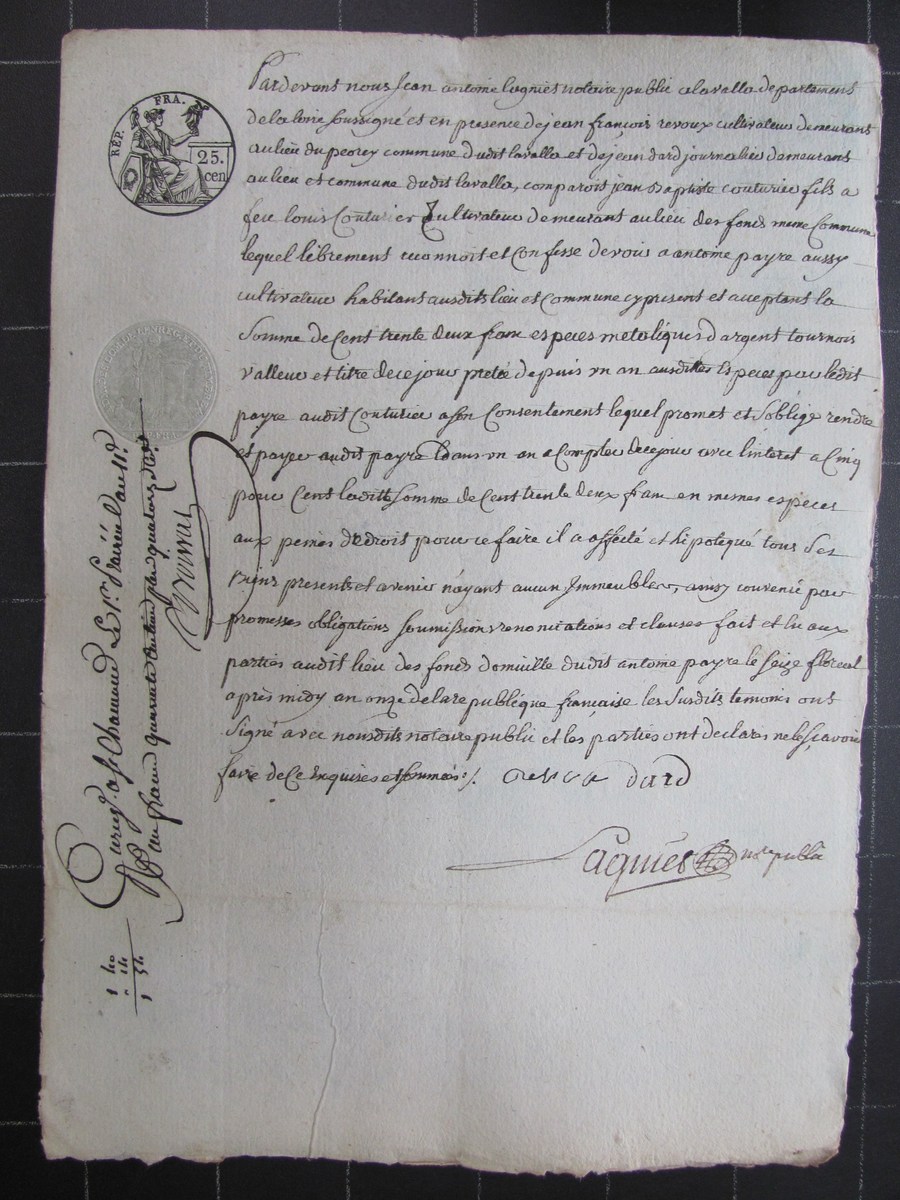 RÉP. FRA.
25.
cen.
Pardevant nous Jean antoine lagniés notaire public a lavalla departement
de la loire soussigné et en presence de jean françois revoux cultivateur demeurant
au lieu du peorey commune dudit lavalla et de jean dard journalier demeurant
au lieu et commune dudit lavalla, comparoit jean Baptiste couturier fils a
feu louis Couturier cultivateur demeurant au lieu des fonds meme Commune
lequel librement reconnoit et Confesse devoir a antoine payre aussy
cultivateur habitant ausdits lieu et Commune cy present et acceptant la
Somme de Cent trente deux franc especes metaliques d'argent tournois
valleur et titre de ce jour preté depuis un an ausdittes Especes par ledit
payre audit Couturier a son Consentement lequel promet et s'oblige rendre
et payer audit payre dans un an a Compter de ce jour avec l'interet a Cinq
pour Cent laditte Somme de Cent trente deux franc en memes espèces
aux peines de droit pour ce faire il a affecté et hipotequé tous ses
Biens presents et avenir n'ayant aucun Immeubles, ainsy convenu par
promesses obligations soumissions renonciations et clauses fait et lu aux
parties audit lieu des fonds domicille dudit antoine payre le seize floreal
après midy an onze de la republique française les Susdits temoins ont
Signé avec nousdits notaire public et les parties ont declaré ne le sçavoir
faire de Ce Enquises et sommés ./. revou dard
Lagniés nore public
Enregé. a St. Chamond Le 1er. Prairéal an 11e.
un franc quarante Centimes plus quatorze Cmes.
1 40
" 14
1 54